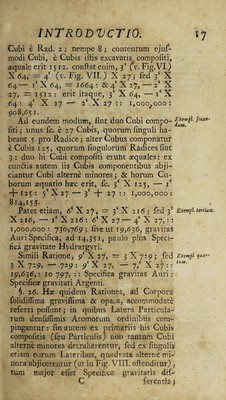 INTRODVCTIO. 17
Cubi è Rad. 2; nempe 8; contentum ejuſ-
modi Cubi, è Cubis illis excavatis compoſiti,
æquale erit 1512. conſtat enim, 3³ (v. Fig. VI.)
X 64, = 4³ (v. Fig. VII.) X 27; ſed 3³ X
64— 1³ X 64, = 1664: & 4³ X 27, — 2³ X
27, = 1512: erit itaque, 3³ X 64, — 1³ X
64: 4³ X 27 — 2³ X 27 :: 1,000,000:
908,651.
Ad eundem modum, ſint duo Cubi compo-
ſiti; unus ſc. è 27 Cubis, quorum ſinguli ha-
beant 5 pro Radice; alter Cubus componatur
è Cubis 125, quorum ſingulorum Radices ſint
3: duo hi Cubi compoſiti erunt æquales: ex
cunctis autem iis Cubis componentibus abji-
ciantur Cubi alternè minores; & horum Cu-
borum æquatio hæc erit, ſc. 3³ X 125, — 1³
+ 125: 5³ X 27 — 3³ + 27 :: 1,000,000:
814,153.
Exempl. ſecun-
dum.
Patet etiam, 6³ X 27, = 3³ X 216; ſed 3³
X 216, — 1³ X 216: 6³ X 27 — 4³ X 27, ::
1,000,000: 730,769; ſive ut 19,636, gravitas
Auri Specifica, ad 14,351, paulo plùs Speci-
ficâ gravitate Hydrargyri.
Exempl. tertium.
Simili Ratione, 9³ X 27, = 3 X 729; ſed
3 X 729, — 729: 9³ X 27, — 7³ X 27 ::
19,636,: 10 797, :: Specifica gravitas Auri:
Specificæ gravitati Argenti.
Exempl. quar-
tum.
§. 26. Hæ quidem Rationes, ad Corpora
ſolidiſſima graviſſima & opaca, accommodatè
referri poſſunt; in quibus Latera Particula-
rum denſiſſimis Atomorum ordinibus com-
pingantur: ſin autem ex primariis his Cubis
compoſitis (ſeu Particulis) non tantum Cubi
alternè minores detraherentur, ſed ex ſingulis
etiam eorum Lateribus, quadrata alternè mi-
nora abjicerentur (ut in Fig. VIII. oſtenditur)
tum major eſſet Specificæ gravitatis dif-
C ferentia;